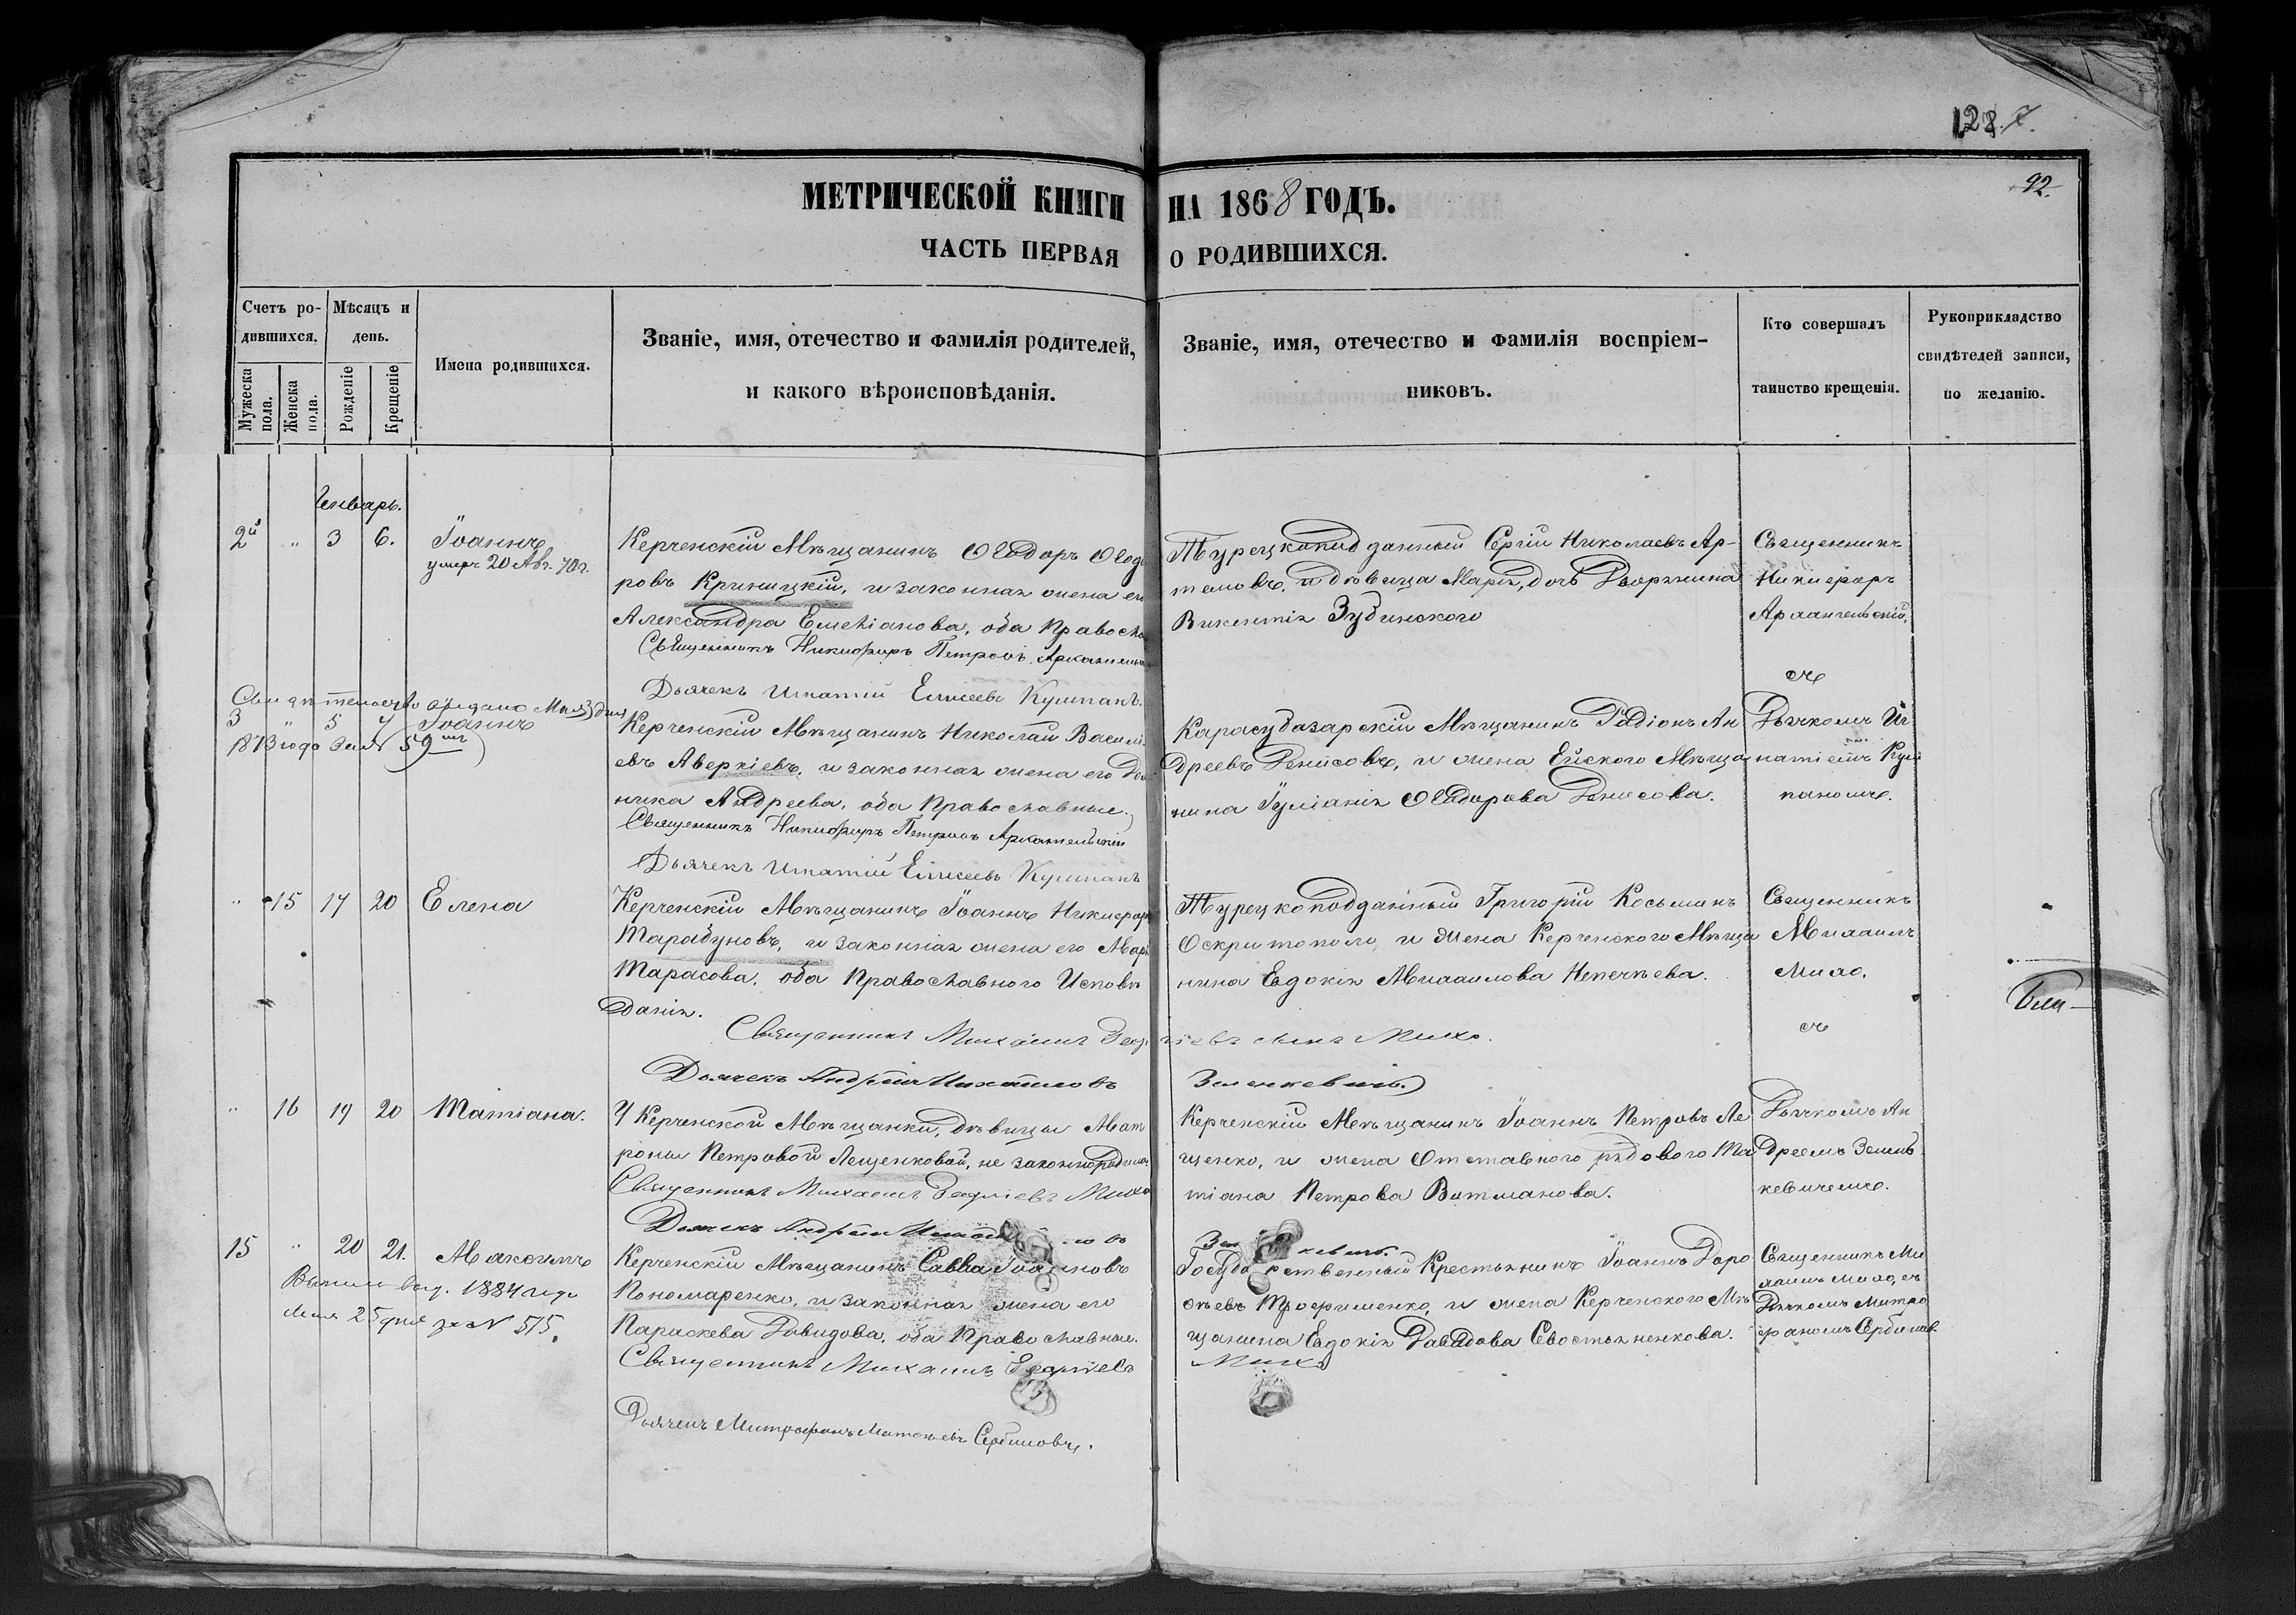 128. 7.
92.
МЕТРИЧЕСКОЙ КНИГИ НА 1868 ГОДЪ.
ЧАСТЬ ПЕРВАЯ О РОДИВШИХСЯ.
Счетъ ро-
дившихся.
Мужеска
пола.
Женска
пола.
Мѣсяцъ и
день.
Рожденіе
Крещеніе
Имена родившихся.
Званіе, имя, отечество и фамилія родителей,
и какого вѣроисповѣданія.
Званіе, имя, отечество и фамилія воспріем-
никовъ.
Кто совершалъ
таинство крещенія.
Рукоприкладство
свидѣтелей записи,
по желанію.
Генварь.
2й " 3 6. Іоаннъ
умеръ 20 Авг. 70г.
Керченскій Мѣщанинъ Ѳеодоръ Ѳеодо
ровъ Криницкій, и законная жена его
Александра Емеліанова, оба Правосла
Священникъ Никифоръ Петровъ Архангельскій
Дьячекъ Игнатій Елисеевъ Кушпанъ.
Турецкоподданный Сергій Николаевъ Ар-
темовъ, и дѣвица Марія, дочь Дворянина
Викентія Зубинского
Священникъ
Никифоръ
Архангельскій,
съ
Свидѣтельство выдано Мая 3 дня
1873 года за № 59мъ
3 " 5 7 Іоаннъ
Керченскій Мѣщанинъ Николай Васили
евъ Аверкіевъ, и законная жена его До
ника Андреева, оба Православные.
Священникъ Никифоръ Петровъ Архангельскій
Дьячекъ Игнатій Елисеевъ Кушпанъ
Карасубазарскій Мѣщанинъ Радіонъ Ан
дреевъ Денисовъ, и жена Ейского Мѣща
нина Іуліанія Ѳеодорова Денисова.
Дьячкомъ Иг
натіемъ Куш
паномъ.
" 15 17 20 Елена
Керченскій Мѣщанинъ Іоаннъ Никифоро
Тарабуновъ, и законная жена его Марія
Тарасова, оба Православного Исповѣ
данія.
Священникъ Михаилъ Георгіевъ сынъ Михо.
Дьячекъ Андрей Михайловъ Зенькевичъ.
Турецкоподданный Григорій Косьминъ
Оскритополо, и жена Керченского Мѣща
нина Евдокія Михаилова Непечѣева.
Священникъ
Михаилъ
Михо,
съ
" 16 19 20 Татіана.
У Керченской Мѣщанки, дѣвицы Мат
роны Петровой Лещенковой, не законнорожденная
Священникъ Михаилъ Георгіевъ Михо
Дьячекъ Андрей Зенькевичъ.
Керченскій Мѣщанинъ Іоаннъ Петровъ Ле
щенко, и жена Отставного рядового Та
тіана Петрова Витманова.
Дьячкомъ Ан
дреемъ Зень
кевичемъ.
15 " 20 21. Максимъ
Выпись выд. 1884 года
Мая 25 дня за № 575.
Керченскій Мѣщанинъ Савва Іоанновъ
Пономаренко, и законная жена его
Параскева Давидова, оба Православные.
Священникъ Михаилъ Георгіевъ Михо
Дьячекъ Митрофанъ Матвѣевъ Сербиновъ.
Государственный Крестьянинъ Іоаннъ Доро
ѳѣевъ Трофименко, и жена Керченского Мѣ
щанина Евдокія Давидова Севостьяненкова.
Священникъ Ми
хаилъ Михо, съ
Дьячкомъ Митро
фаномъ Сербинов.